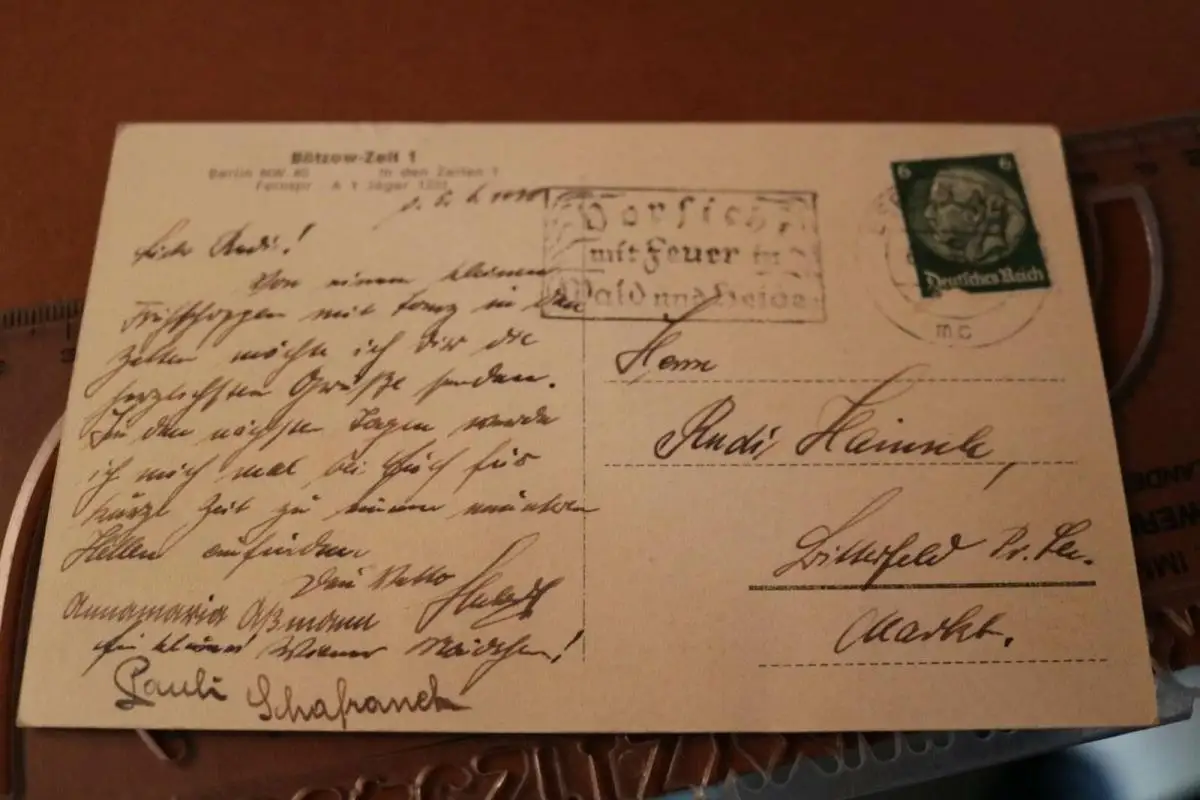 Bötzow-Zelt 1
Berlin NW 40 In den Zelten 1
Fernspr. A 1 Jäger
Lieber Rudi!
Von einem kleinen
Frühschoppen mit Tanz in den
Zelten möchte ich dir die
herzlichsten Grüße senden.
In den nächsten Tagen werde
ich mich mal bei Euch für
kurze Zeit zu einem
Hellen einfinden.
Dein
Annamaria Aßmann
Ein kleines Wiener Mädchen!
Pauli Schafranek
Vorsicht
mit Feuer in
Wald und Heide
6 6
Deutsches Reich
mc
Herrn
Rudi
Bitterfeld Pr. Sa.
Markt.